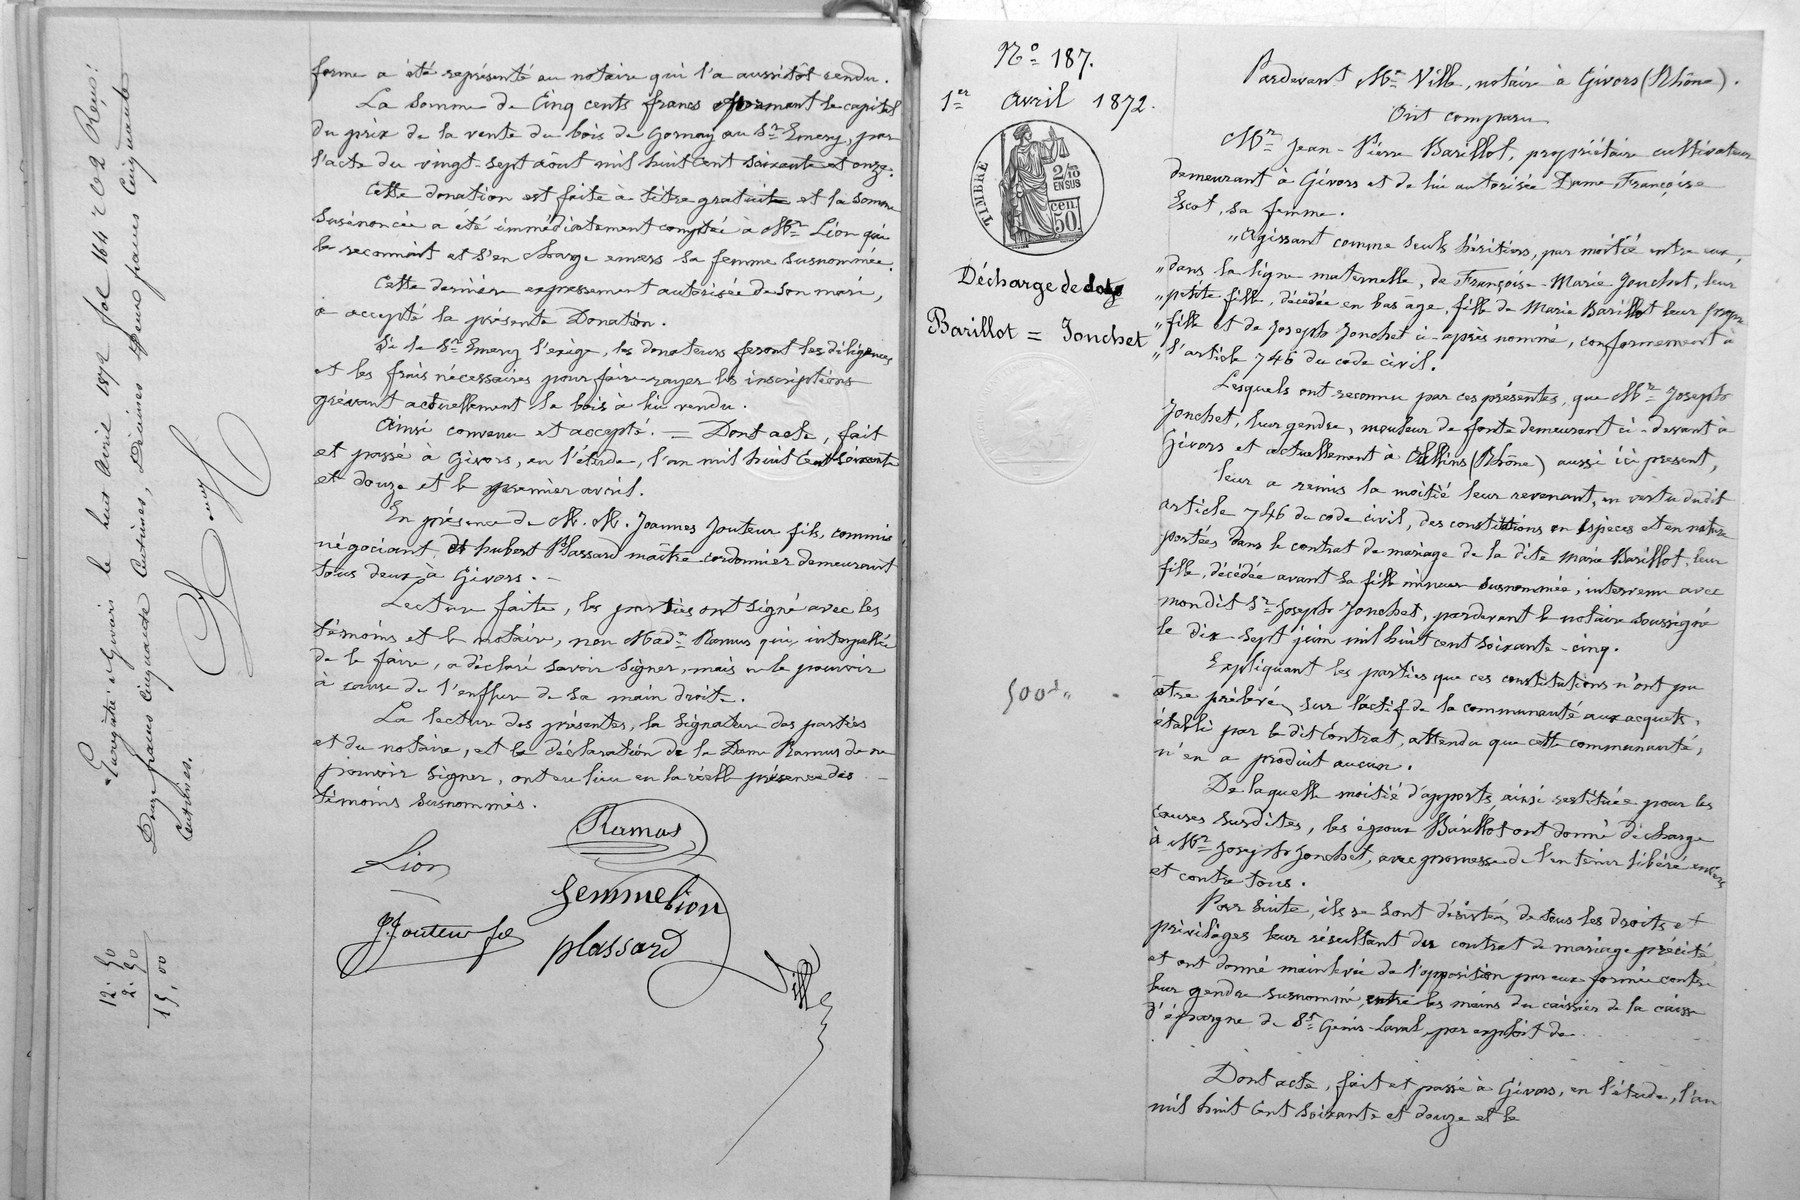 forme a été représenté au notaire qui l'a aussitôt rendu.
La somme de Cinq cents francs formant le capital
du prix de la vente du bois de Gornay au Sr Emery, par
l'acte du vingt-sept août mil huit cent soixante et onze.
Cette donation est faite à titre gratuit et la somme
susénoncée a été immédiatement comptée à Mr Lion qui
le reconnait et s'en charge envers sa femme susnommée.
Cette dernière expressement autorisée de son mari,
a accepté la présente Donation.
Si le Sr Emery l'exige, les donateurs feront les diligences
et les frais nécessaires pour faire rayer les inscriptions
grévant actuellement le bois à lui vendu.
Ainsi convenu et accepté. = Dont acte, fait
et passé à Givors, en l'étude, l'an mil huit cent soixante
et douze et le premier avril.
En présence de M. M. Joannes Jouteur fils, commis
négociant et hubert Plassard maître cordonnier demeurant
tous deux à Givors. –
Lecture faite, les parties ont signé avec les
témoins et le notaire, non Made Ramus qui, interpellée
de le faire, a déclaré savoir signer, mais ne le pouvoir
à cause de l'enflure de sa main droite.
La lecture des présentes, la signature des parties
et du notaire, et la déclaration de la Dame Ramus de ne
pouvoir signer, ont eu lieu en la réelle présence des
témoins susnommés.
Ramus
Lion
femme Lion
J. Jouteur fils
plassard
Ville
Enregistré à Givors le huit Avril 1872 fol 166 r C 2 Reçu:
Douze francs cinquante Centimes, Décimes deux francs Cinquante
Centimes.
12. 50
2. 50
15, 00
No 187.
1er Avril 1872.
TIMBRE
2/10
EN SUS
50 cen.
Décharge de dot
Barillot = Jonchet
500f "
Pardevant Me Ville, notaire à Givors (Rhône).
Ont comparu
Mr Jean-Pierre Barillot, propriétaire cultivateur
demeurant à Givors et de lui autorisée Dame Françoise
Escot, sa femme.
"Agissant comme seuls héritiers, par moitié entre eux,
"dans la ligne maternelle, de Françoise-Marie Jonchet, leur
"petite fille, décédée en bas âge, fille de Marie Barillot leur propre
"fille et de Joseph Jonchet ci-après nommé, conformement à
"l'article 746 du code civil.
Lesquels ont reconnu par ces présentes, que Mr Joseph
Jonchet, leur gendre, mouleur de fonte demeurant ci-devant à
Givors et actuellement à Oullins (Rhône) aussi ici présent,
leur a remis la moitié leur revenant, en vertu dudit
article 746 du code civil, des constitutions en espèces et en nature
portées dans le contrat de mariage de la dite Marie Barillot, leur
fille, décédée avant sa fille mineur susnommée, intervenu avec
mondit Sr Joseph Jonchet, pardevant le notaire soussigné
le dix-sept juin mil huit cent soixante-cinq.
Expliquant les parties que ces constitutions n'ont pu
être prélevé sur l'actif de la communauté aux acquets,
établi par le dit Contrat, attendu que cette communauté,
n'en a produit aucun.
De laquelle moitié d'apports, ainsi restituée pour les
causes susdites, les époux Barillot ont donné décharge
à Mr Joseph Jonchet, avec promesse de l'en tenir libéré envers
et contre tous.
Par suite, ils se sont désistés, de tous les droits et
privilèges leur résultant du contrat de mariage précité,
et ont donné mainlevée de l'opposition par eux formée contre
leur gendre susnommé, entre les mains du caissier de la caisse
d'épargne de St Genis-Laval, par exploit de
Dont acte, fait et passé à Givors, en l'étude, l'an
mil huit cent soixante et douze et le